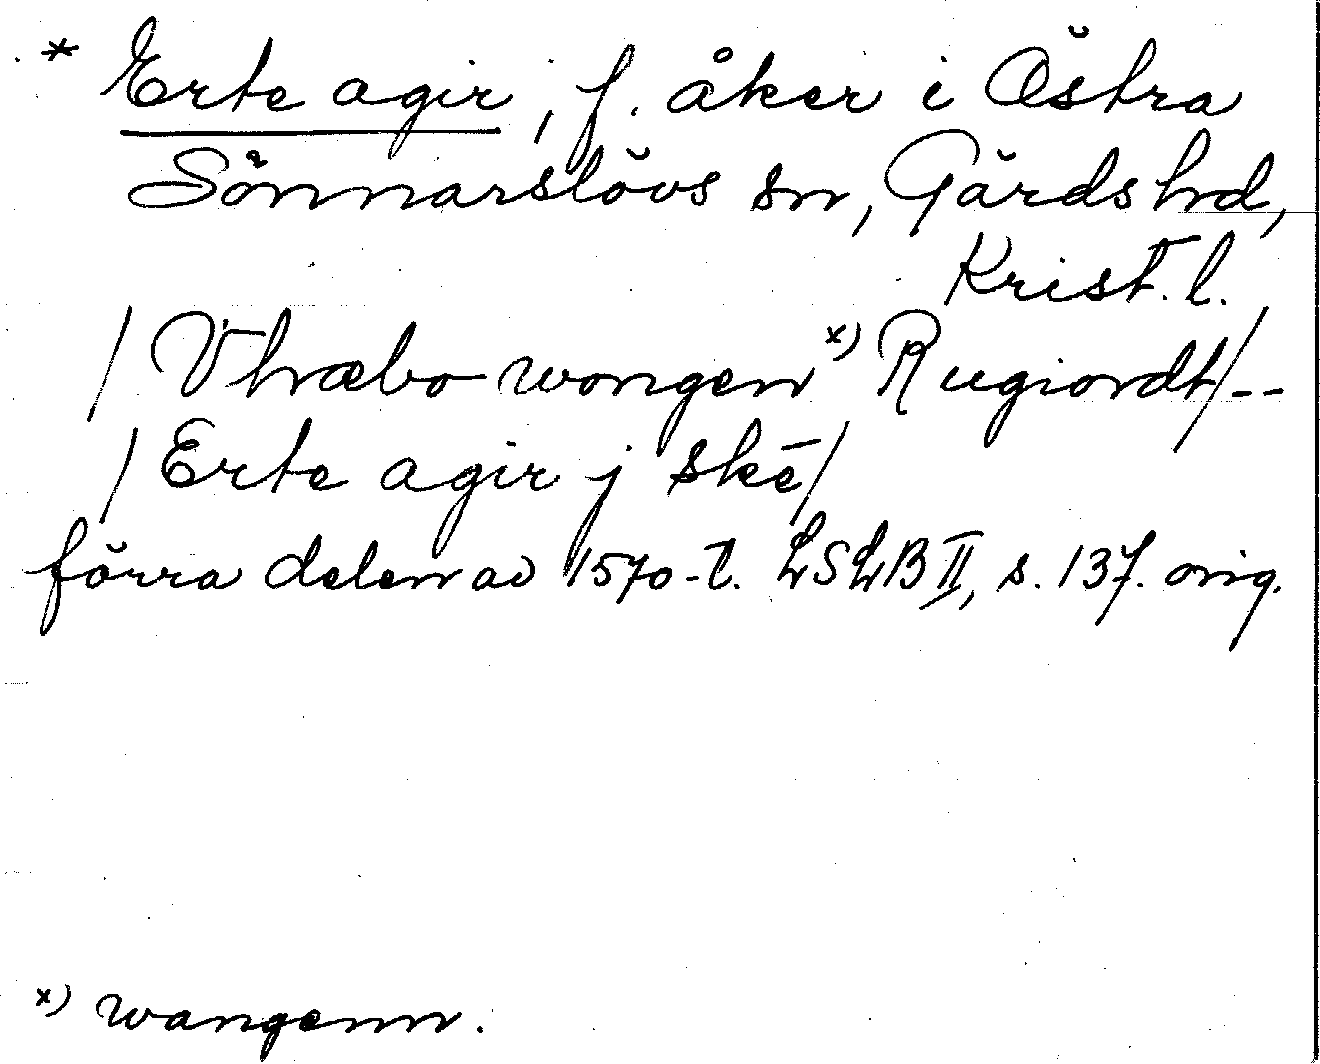 * Erte agir, f. åker i Östra
Sönnarslövs sn, Gärds hd,
Krist. l.
/ Vhræbo wongen x) Rugiordt/--
/ Erte agir j skē/
förra delen av 1570-t. LSLB II, s. 137. orig.
x) wangenn.